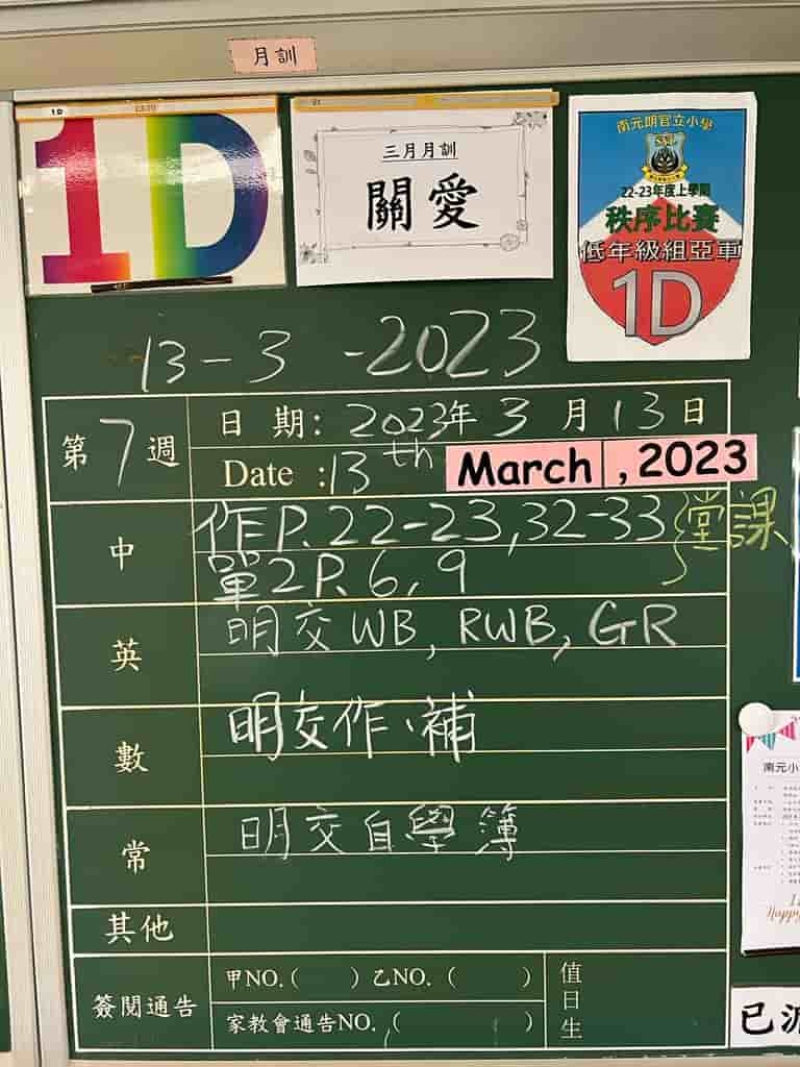 月訓
1D
1D
三月月訓
關愛
南元朗官立小學
22-23年度上學期
秩序比賽
低年級組亞軍
1D
13-3-2023
第7週
日期: 2023年3月13日
Date :13th March, 2023
中
作P.22-23,32-33
單2P.6,9
堂課
英
明交WB, RWB, GR
數
明交作、補
常
明交自學簿
其他
簽閱通告
甲NO.( ) 乙NO.( )
家教會通告NO.( )
值日生
南元小
Happy
已派